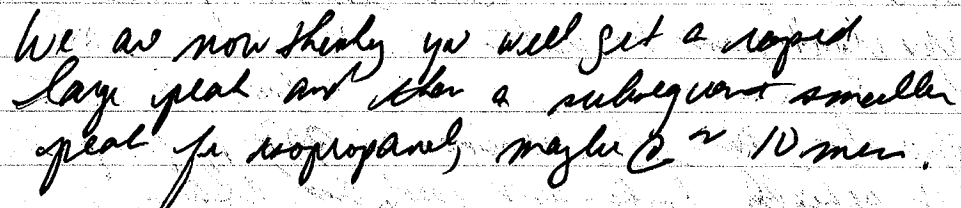 We are now thinking you will get a rapid
large peak and then a subsequent smaller
peak for isopropanol, maybe @ ~ 10 min.